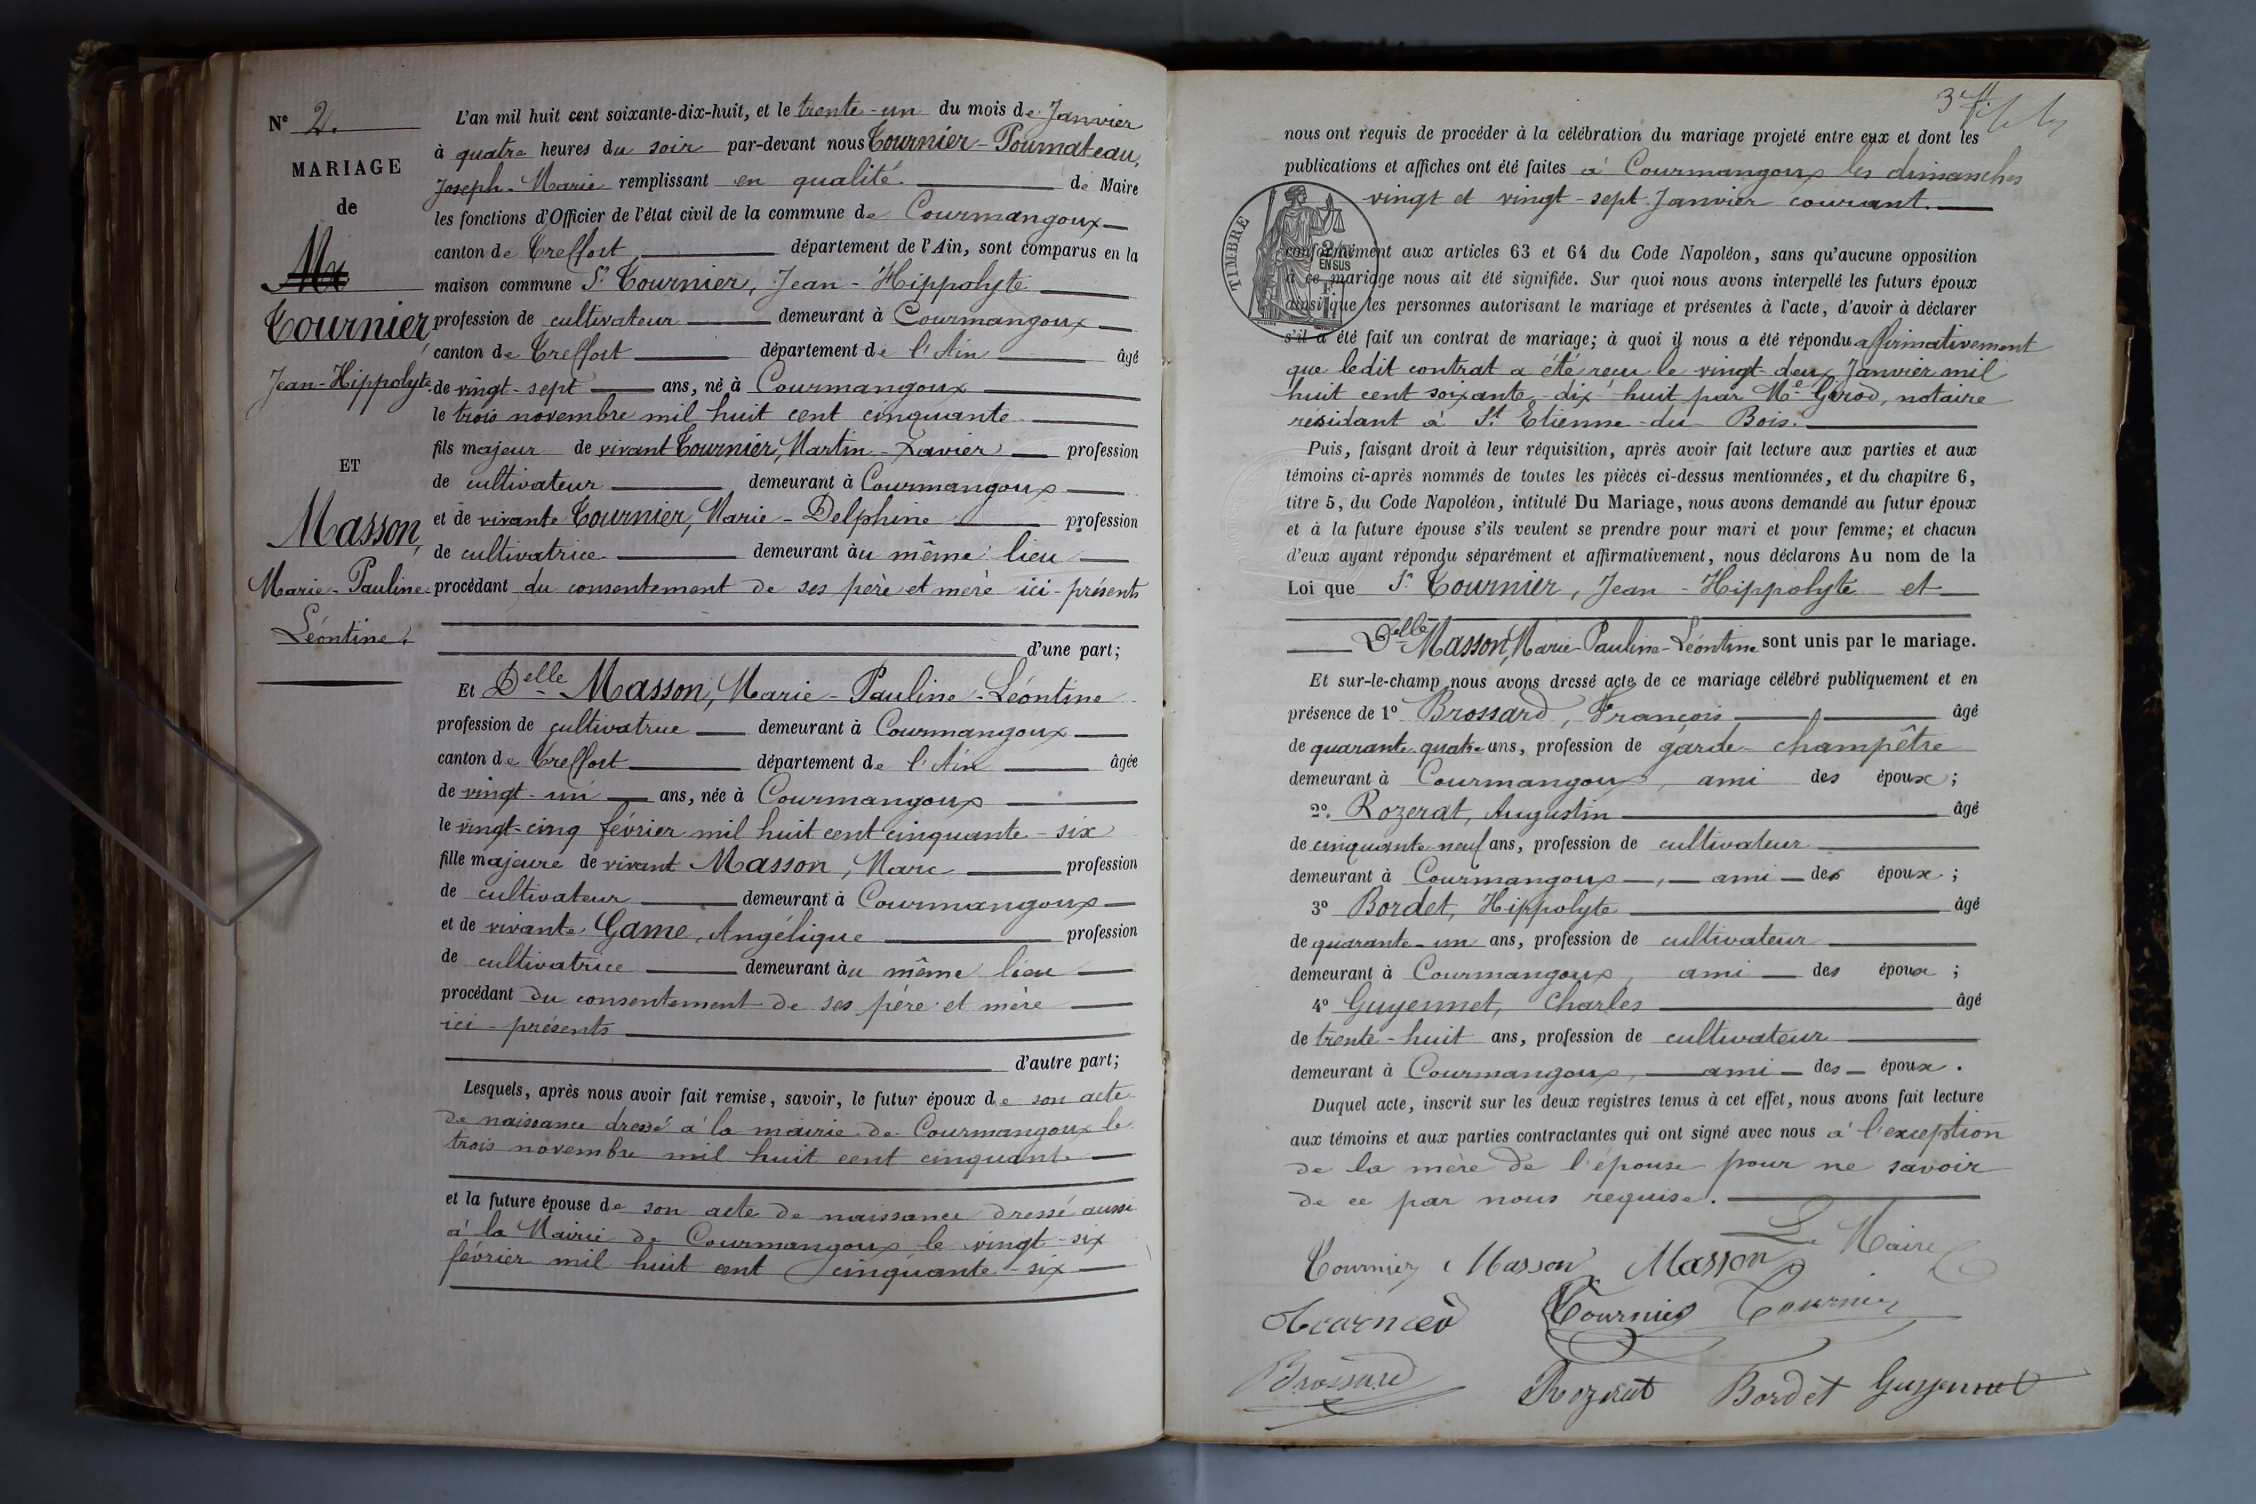 Nº 2.
MARIAGE
de
Tournier,
Jean-Hippolyte.
ET
Masson,
Marie-Pauline-
Léontine.
L'an mil huit cent soixante-dix-huit, et le trente-un du mois de Janvier
à quatre heures du soir par-devant nous Tournier-Poumateau,
Joseph-Marie remplissant en qualité de Maire
les fonctions d'Officier de l'état civil de la commune de Courmangoux
canton de Treffort département de l'Ain, sont comparus en la
maison commune Sr Tournier, Jean-Hippolyte
profession de cultivateur demeurant à Courmangoux
canton de Treffort département de l'Ain âgé
de vingt-sept ans, né à Courmangoux
le trois novembre mil huit cent cinquante
fils majeur de vivant Tournier, Martin-Xavier profession
de cultivateur demeurant à Courmangoux
et de vivante Tournier, Marie-Delphine profession
de cultivatrice demeurant au même lieu
procédant du consentement de ses père et mère ici-présents
d'une part;
Et Delle Masson, Marie-Pauline-Léontine
profession de cultivatrice demeurant à Courmangoux
canton de Treffort département de l'Ain âgée
de vingt-un ans, née à Courmangoux
le vingt-cinq février mil huit cent cinquante-six
fille majeure de vivant Masson, Marc profession
de cultivateur demeurant à Courmangoux
et de vivante Game, Angélique profession
de cultivatrice demeurant au même lieu
procédant du consentement de ses père et mère
ici-présents
d'autre part;
Lesquels, après nous avoir fait remise, savoir, le futur époux de son acte
de naissance dressé à la mairie de Courmangoux le
trois novembre mil huit cent cinquante
et la future épouse de son acte de naissance dressé aussi
à la Mairie de Courmangoux le vingt-six
février mil huit cent cinquante-six
nous ont requis de procéder à la célébration du mariage projeté entre eux et dont les
publications et affiches ont été faites à Courmangoux les dimanches
vingt et vingt-sept Janvier courant.
TIMBRE
conformément aux articles 63 et 64 du Code Napoléon, sans qu'aucune opposition
à ce mariage nous ait été signifiée. Sur quoi nous avons interpellé les futurs époux
ainsi que les personnes autorisant le mariage et présentes à l'acte, d'avoir à déclarer
s'il a été fait un contrat de mariage; à quoi il nous a été répondu affirmativement
que ledit contrat a été reçu le vingt-deux Janvier mil
huit cent soixante-dix-huit par Me Girod, notaire
résidant à St Etienne-du-Bois.
Puis, faisant droit à leur réquisition, après avoir fait lecture aux parties et aux
témoins ci-après nommés de toutes les pièces ci-dessus mentionnées, et du chapitre 6,
titre 5, du Code Napoléon, intitulé Du Mariage, nous avons demandé au futur époux
et à la future épouse s'ils veulent se prendre pour mari et pour femme; et chacun
d'eux ayant répondu séparément et affirmativement, nous déclarons Au nom de la
Loi que Sr Tournier, Jean-Hippolyte et
Delle Masson, Marie-Pauline-Léontine sont unis par le mariage.
Et sur-le-champ nous avons dressé acte de ce mariage célébré publiquement et en
présence de 1º Brossard, François âgé
de quarante-quatre ans, profession de garde-champêtre
demeurant à Courmangoux, ami des époux;
2º Rozerat, Augustin âgé
de cinquante-neuf ans, profession de cultivateur
demeurant à Courmangoux, ami des époux;
3º Bordet, Hippolyte âgé
de quarante-un ans, profession de cultivateur
demeurant à Courmangoux, ami des époux;
4º Guyennet, Charles âgé
de trente-huit ans, profession de cultivateur
demeurant à Courmangoux, ami des époux.
Duquel acte, inscrit sur les deux registres tenus à cet effet, nous avons fait lecture
aux témoins et aux parties contractantes qui ont signé avec nous à l'exception
de la mère de l'épouse pour ne savoir
de ce par nous requise.
Le Maire
Tournier Masson Masson
Tournier Tournier Tournier
Brossard Rozerat Bordet Guyennet